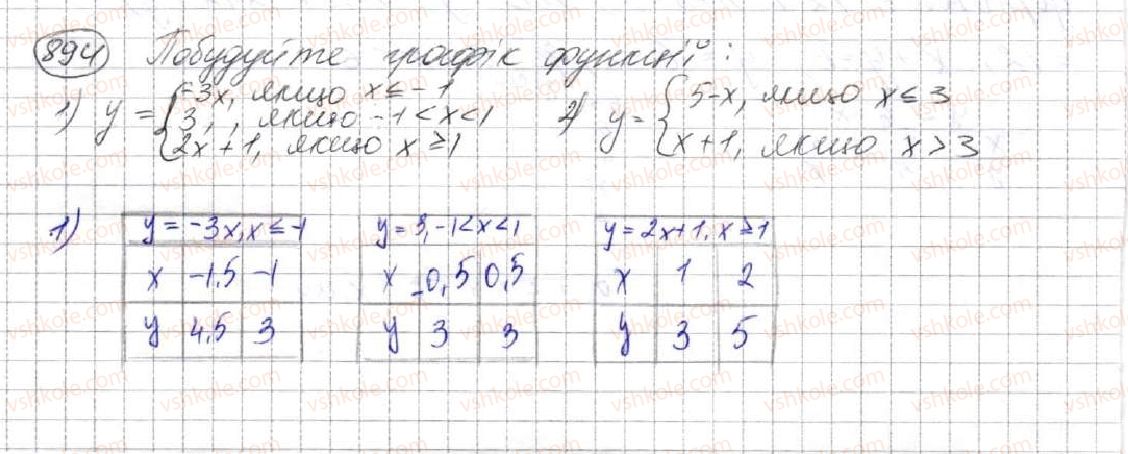 894 Побудуйте графік функції:
1) y = { -3x, якщо x ≤ -1
3, якщо -1 < x < 1
2x+1, якщо x ≥ 1
2) y = { 5-x, якщо x ≤ 3
x+1, якщо x > 3
1)
y = -3x, x ≤ -1
x -1,5 -1
y 4,5 3
y = 3, -1 < x < 1
x -0,5 0,5
y 3 3
y = 2x+1, x ≥ 1
x 1 2
y 3 5
vshkole.com